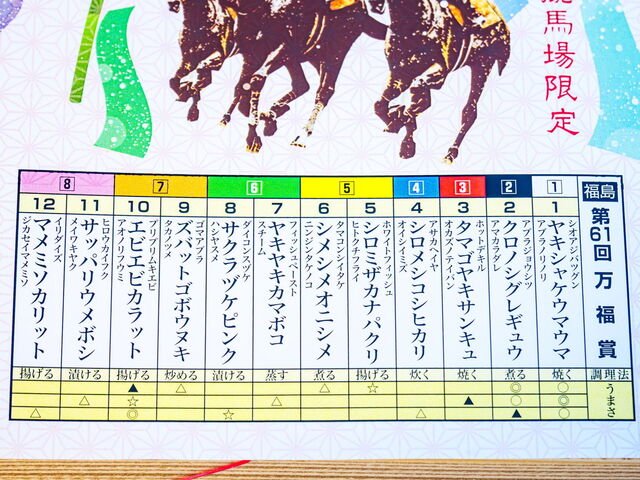 競馬場限定
福島
第61回万福賞
調理法
うまさ
1
1
シオアジバツグン
ヤキシャケウマウマ
アブラノリノリ
焼く
○
○
○
2
2
アブラジョウシツ
クロノシグレギュウ
アマカラダレ
煮る
◎
◎
▲
3
3
ホットデキル
タマゴヤキサンキュ
オカズノテイバン
焼く
▲
4
4
アサカベイヤ
シロメシコシヒカリ
オイシイミズ
炊く
△
5
5
ホワイトフィッシュ
シロミザカナパクリ
ヒトクチフライ
揚げる
☆
6
タマコンシイタケ
シメシメオニシメ
ニンジンタケノコ
煮る
△
6
7
フィッシュペースト
ヤキヤキカマボコ
スチーム
蒸す
△
8
ダイコンスヅケ
サクラヅケピンク
ハシヤスメ
漬ける
☆
7
9
ゴマアブラ
ズバットゴボウヌキ
タカノツメ
炒める
△
10
プリプリムキエビ
エビエビカラット
アオノリフウミ
揚げる
▲
☆
◎
8
11
ヒロウカイフク
サッパリウメボシ
メイワキヤク
漬ける
△
12
イリダイズ
マメミソカリット
ジカセイマメミソ
揚げる
△